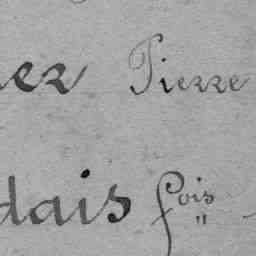 ner Pierre
dais fois "